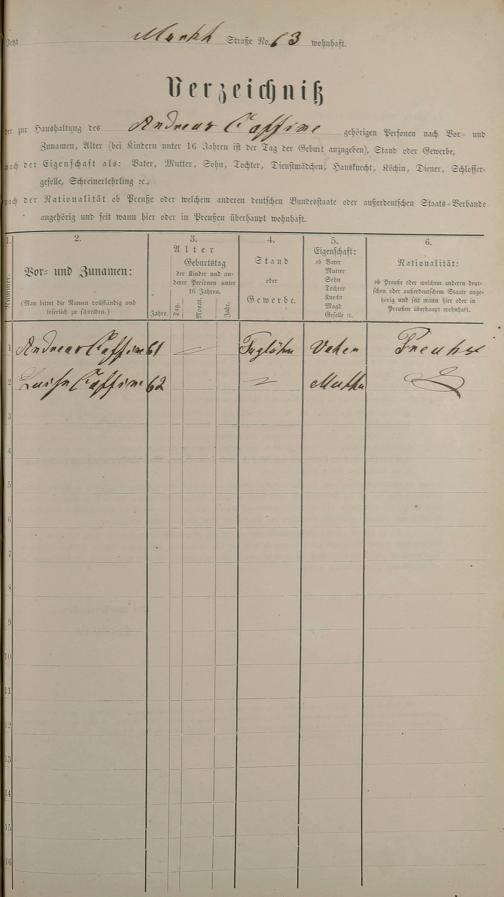 Jetzt Markt Straße No. 63 wohnhaft.
Verzeichniß
der zur Haushaltung des Andreas Caffine gehörigen Personen nach Vor- und
Zunamen, Alter (bei Kindern unter 16 Jahren ist der Tag der Geburt anzugeben), Stand oder Gewerbe,
nach der Eigenschaft als: Vater, Mutter, Sohn, Tochter, Dienstmädchen, Hausknecht, Köchin, Diener, Schlosser-
geselle, Schreinerlehrling ꝛc.,
nach der Nationalität ob Preuße oder welchem anderen deutschen Bundesstaate oder außerdeutschen Staats-Verbande
angehörig und seit wann hier oder in Preußen überhaupt wohnhaft.
1.
Nummer.
2.
Vor- und Zunamen:
(Man bittet die Namen vollständig und
leserlich zu schreiben.)
3.
Alter
Jahre.
Geburtstag
der Kinder und an-
derer Personen unter
16 Jahren.
Tag.
Monat.
Jahr.
4.
Stand
oder
Gewerbe.
5.
Eigenschaft:
ob Vater
Mutter
Sohn
Tochter
Knecht
Magd
Geselle ꝛc.
6.
Nationalität:
ob Preuße oder welchem anderen deut-
schen oder außerdeutschem Staate ange-
hörig und seit wann hier oder in
Preußen überhaupt wohnhaft.
1 Andreas Caffine 61 Taglöhn Vater Preuße
2 Luise Caffine 62 Mutter
3
4
5
6
7
8
9
10
11
12
13
14
15
16